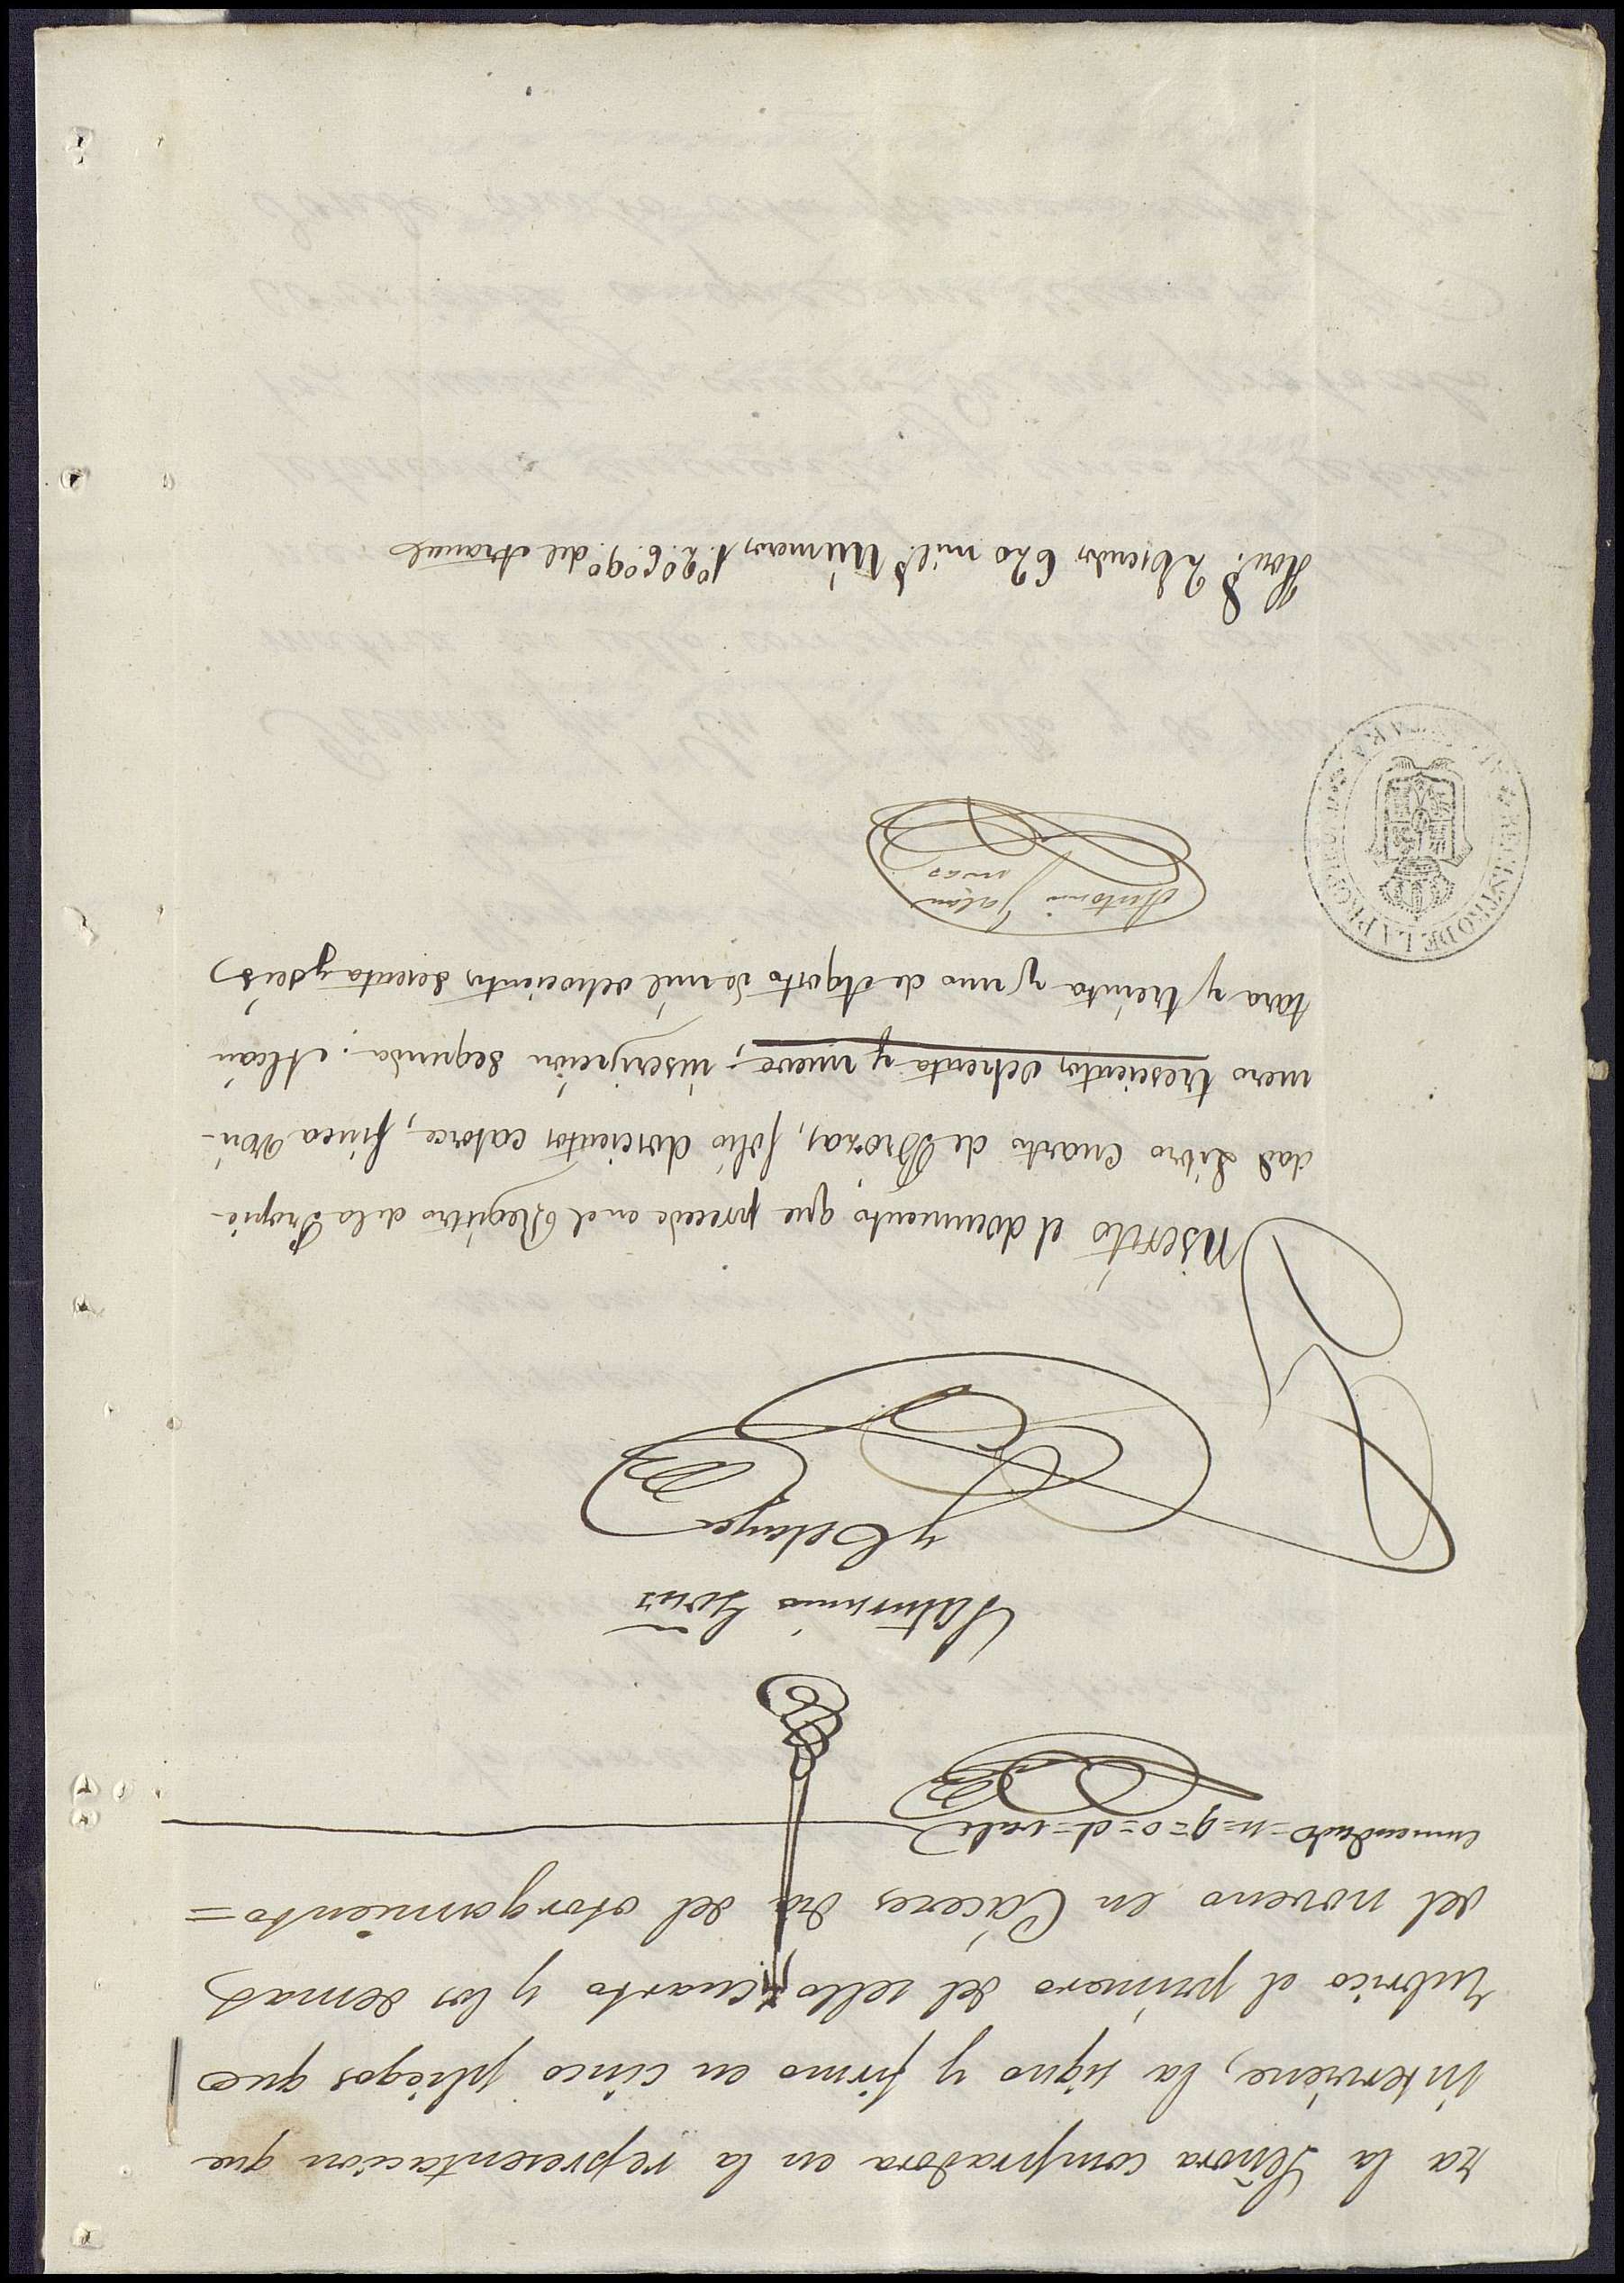 ra la Señora compradora en la representacion que
interviene, la signo y firmo en cinco pliegos que
rubrico el primero del sello cuarto y los demas
del noveno en Cáceres dia del otorgamiento=
enmendado=n=q=o=d=vale
Saturnino Gonz
y Celaya
Inscrito el documento que precede en el Registro de la Propie-
dad Libro cuarto de Brozas, folio doscientos catorce, finca nú-
mero trescientos ochenta y nueve, inscripcion segunda. Alcán
tara y treinta y uno de Agosto de mil ochocientos sesenta y seis
Antonio Galan
REGISTRO DE LA PROPIEDAD ALCANTARA
Hon.s 2 Escudos 620 mil.s Números 1.º 2.º 6.º 9.º del Arancel